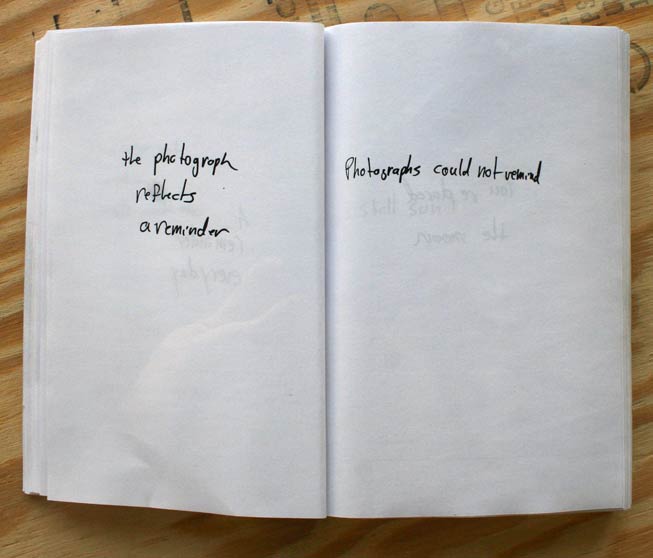 the photograph
reflects
a reminder
Photographs could not remind